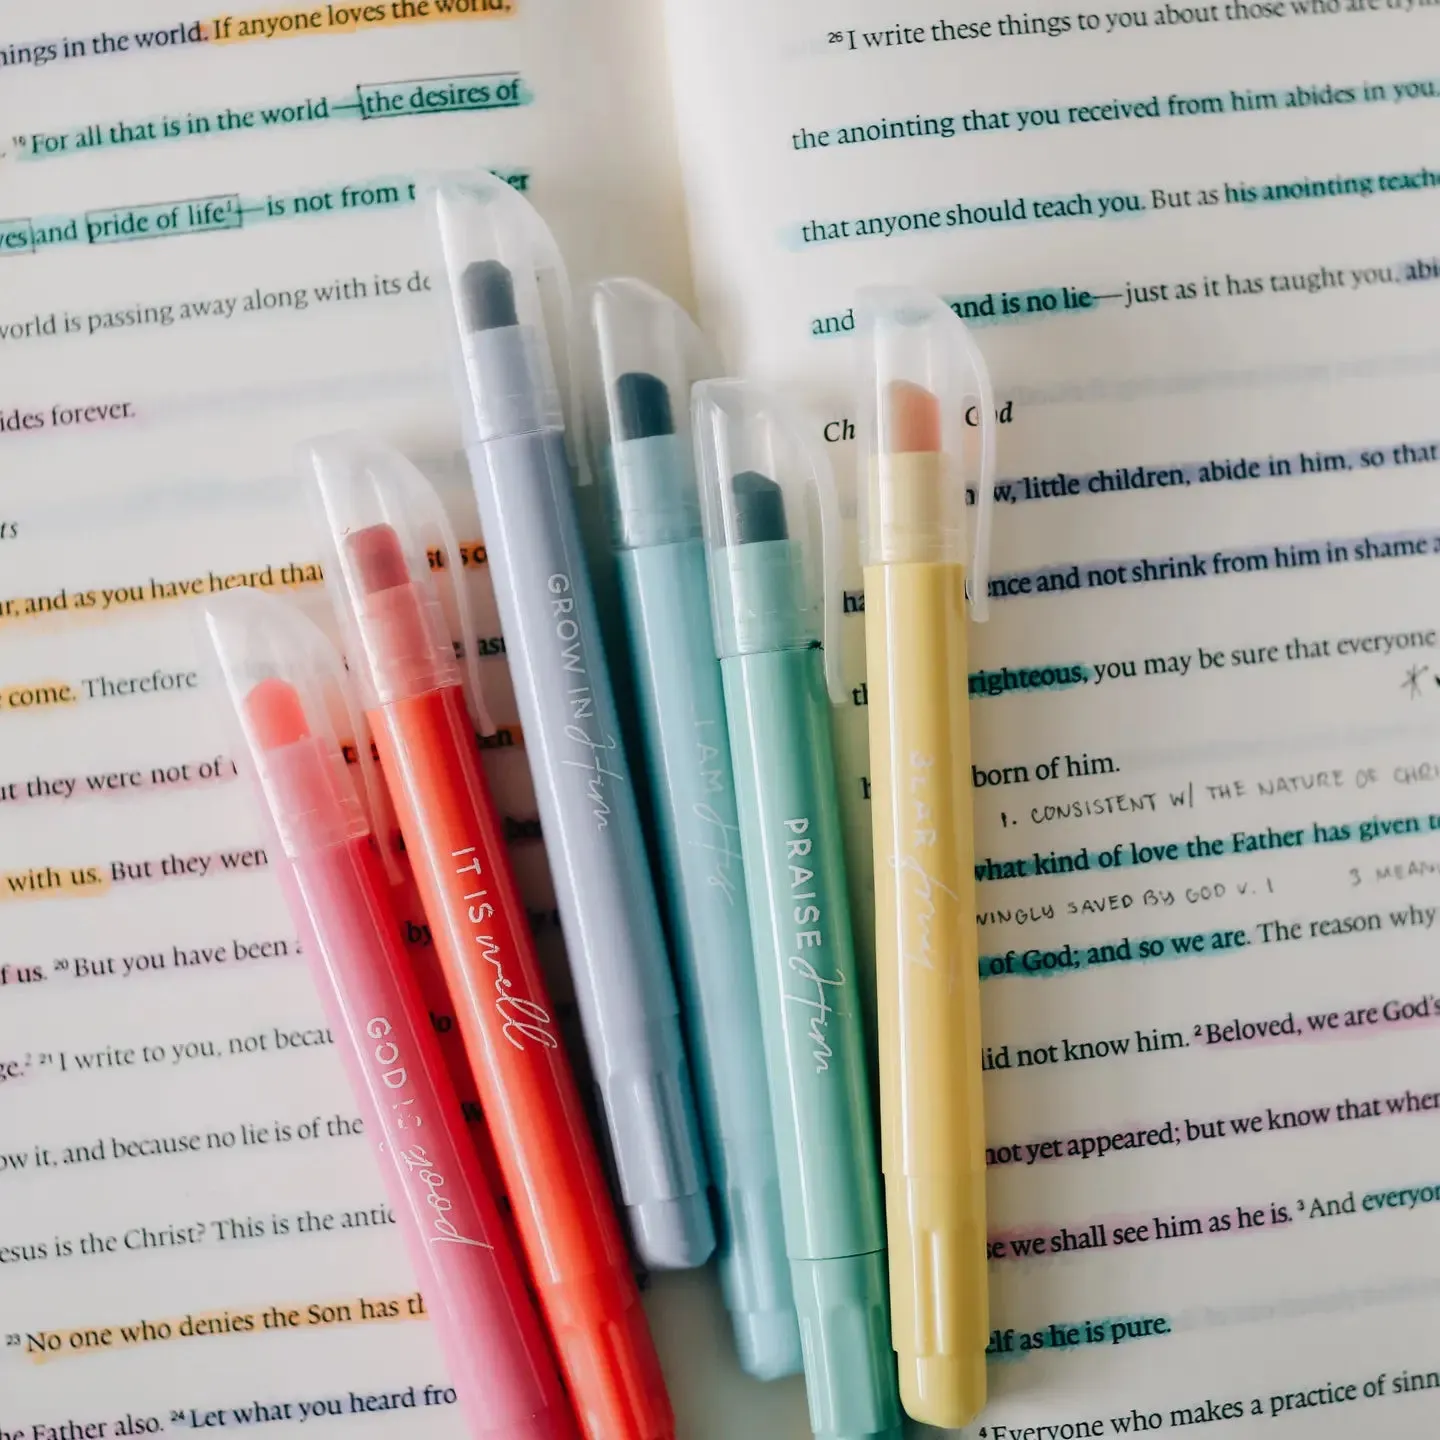 things in the world. If anyone loves the world,
¹⁶ For all that is in the world—the desires of
and pride of life¹—is not from
world is passing away along with its
forever.
and as you have heard that
come. Therefore
they were not of
with us. But they
of us. ²⁰ But you have been
²¹ I write to you, not
it, and because no lie is of the
Jesus is the Christ? This is the
²³ No one who denies the Son has
the Father also. ²⁴ Let what you heard
GOD IS good
IT IS well
GROW IN Him
I AM His
PRAISE Him
BEAR fruit
²⁶ I write these things to you about those who are
the anointing that you received from him abides in you,
that anyone should teach you. But as his anointing
and is no lie—just as it has taught you,
God
little children, abide in him, so that
and not shrink from him in shame
righteous, you may be sure that everyone
born of him.
1. CONSISTENT W/ THE NATURE OF
what kind of love the Father has given
SAVED BY GOD V. 1 3
of God; and so we are. The reason why
did not know him. ² Beloved, we are God's
not yet appeared; but we know that when
we shall see him as he is. ³ And
as he is pure.
⁴ Everyone who makes a practice of